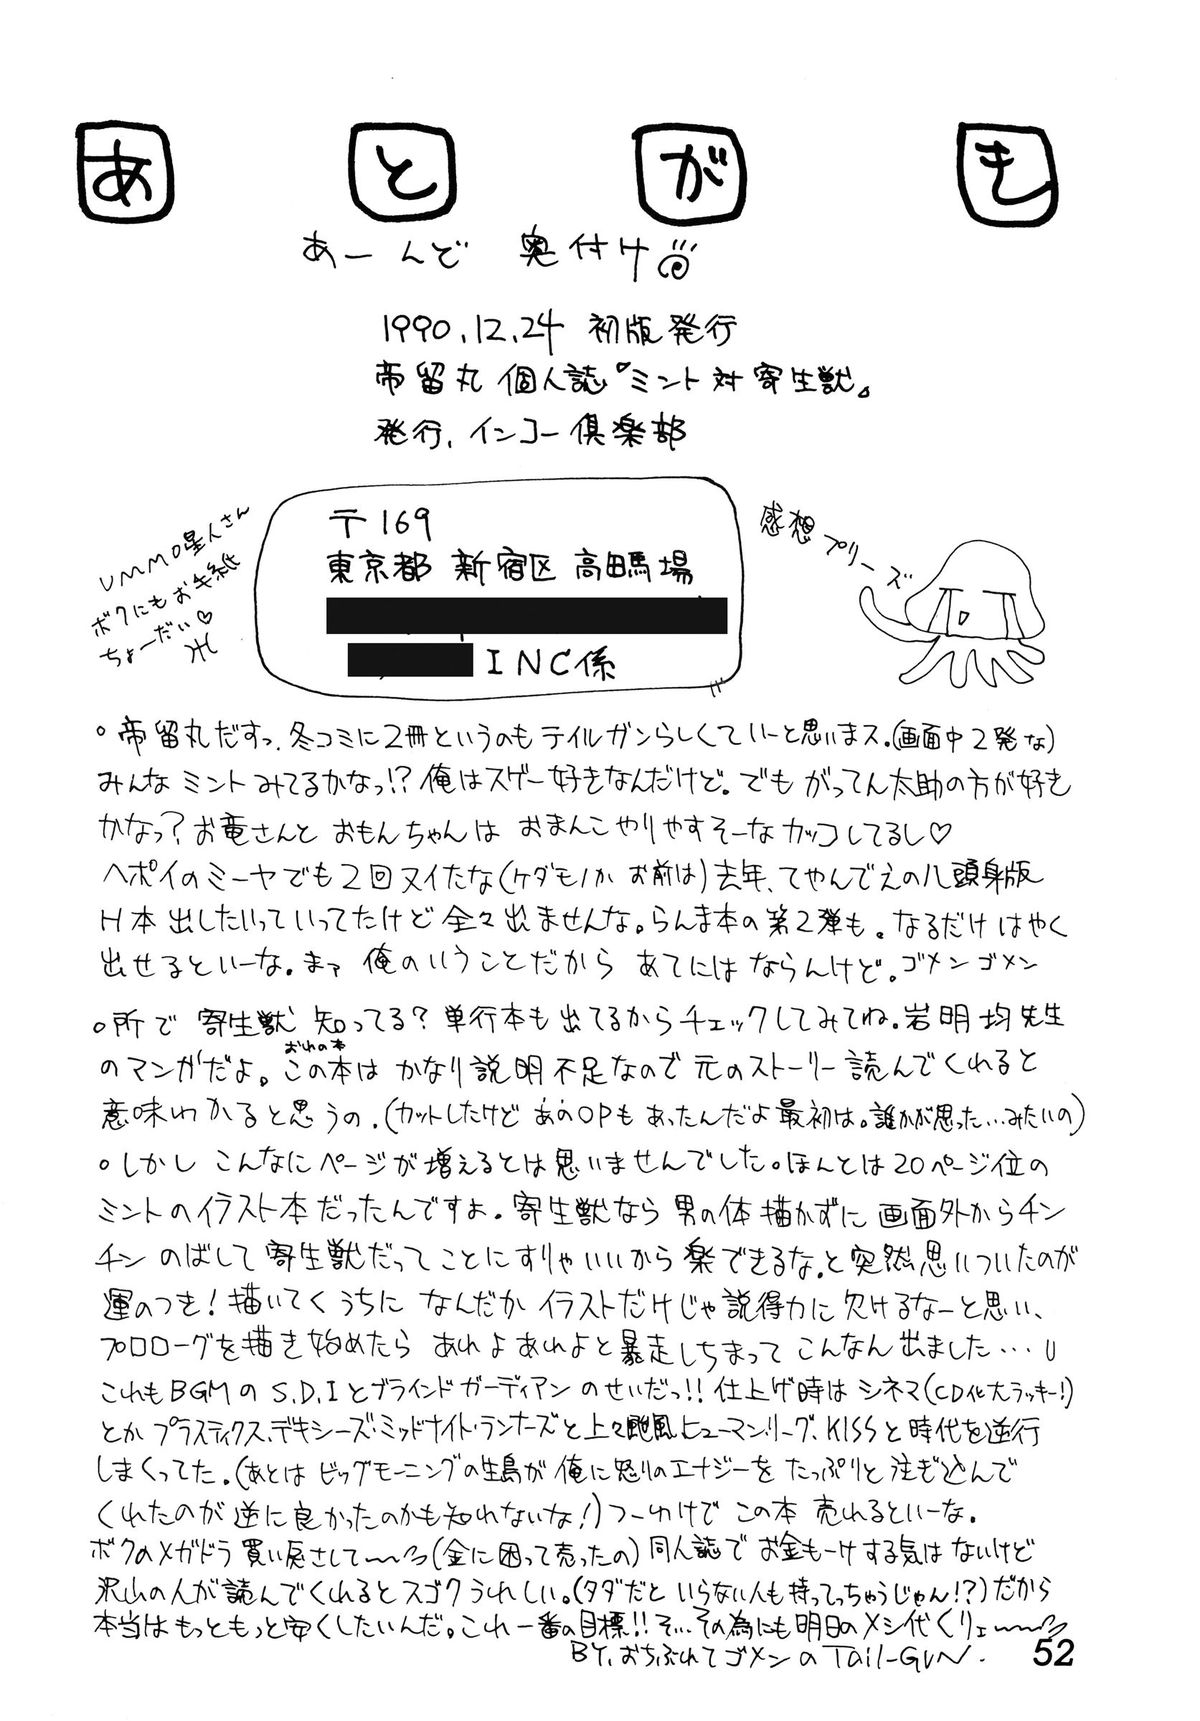 あとがき
あーんど 奥付け
1990.12.24 初版発行
帝留丸 個人誌『ミント対寄生獣』
発行、インコー倶楽部
〒169
東京都 新宿区 高田馬場
INC係
UMMO星人さん
ボクにもお手紙
ちょーだい♡
感想プリーズ
。帝留丸だすっ、冬コミに2冊というのもテイルガンらしくていーと思いまス。(画面中2発な)
みんな ミント みてるかなっ!? 俺はスゲー好きなんだけど。でも がってん太助の方が好き
かなっ? お竜さんと おもんちゃんは おまんこやりやすそーなカッコしてるし♡
ヘポイのミーヤでも2回ヌイたな(ケダモノか お前は)去年、てやんでえの八頭身版
H本 出したいっていってたけど 全々出ませんな。らんま本の第2弾も。なるだけ はやく
出せるといーな。まァ 俺のいうことだから あてには ならんけど。ゴメンゴメン
。所で 寄生獣 知ってる? 単行本も出てるからチェックしてみてね。岩明均先生
のマンガだよ。この本は かなり説明不足なので 元のストーリー読んでくれると
おれの本
意味わかると思うの。(カットしたけど あのOPも あったんだよ最初は。誰かが思った…みたいの)
。しかし こんなにページが増えるとは思いませんでした。ほんとは20ページ位の
ミントのイラスト本だったんですよ。寄生獣なら 男の体描かずに 画面外からチン
チン のばして 寄生獣だって ことにすりゃいいから 楽できるな。と突然思いついたのが
運のつき! 描いてくうちに なんだか イラストだけじゃ説得力に欠けるなーと思い、
プロローグを描き始めたら あれよあれよと暴走しちまって こんなん出ました…
これもBGMのS.D.Iとブラインドガーディアンのせいだっ!! 仕上げ時は シネマ(CD化大ラッキー!)
とか プラスティクス、デキシーズ・ミッドナイト・ランナーズと上々颱風、ヒューマン・リーグ、KISSと時代を逆行
しまくってた。(あとは ビッグモーニングの生島が 俺に怒りのエナジーを たっぷりと注ぎ込んで
くれたのが 逆に良かったのかも知れないな!)つーわけで この本 売れるといーな。
ボクのメガドラ買い戻さして〜(金に困って売ったの)同人誌で お金もーけする気はないけど
沢山の人が読んでくれるとスゴクうれしい。(タダだと いらない人も持ってっちゃうじゃん!?)だから
本当はもっともっと安くしたいんだ。これ一番の目標!! そ…その為にも明日のメシ代くりェ〜
BY.おちぶれてゴメンのTail-GuN.
52